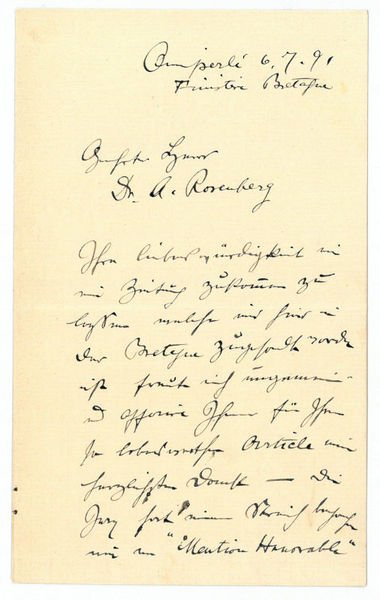 Quimperlé 6.7.91
Finistère Bretagne
Geehrter Herr
Dr. A. Rosenberg
Ihre Liebenswürdigkeit mir
die Zeitung zukommen zu
lassen welche mir hier in
der Bretagne zugesandt worden
ist freut mich ungemein
Ihnen für Ihren
so liebenswerthen Article mein
herzlichsten Dank — Die
Jury hat einen Streich
mir "Mention Honorable"